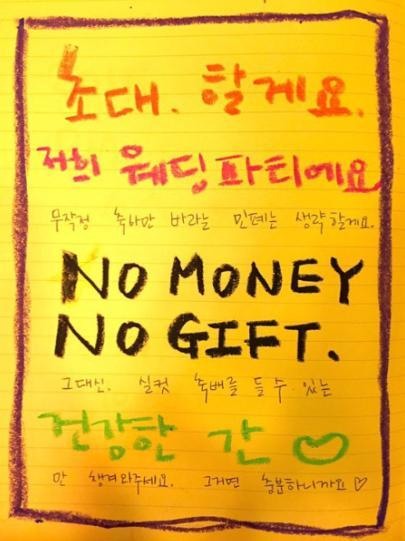 초대. 할게요.
저희 웨딩파티에요
무작정 축하만 바라는 민폐는 생략할게요.
NO MONEY
NO GIFT.
그대신. 실컷 축배를 들 수 있는
건강한 간 ♡
만 챙겨와주세요. 그거면 충분하니까요♡